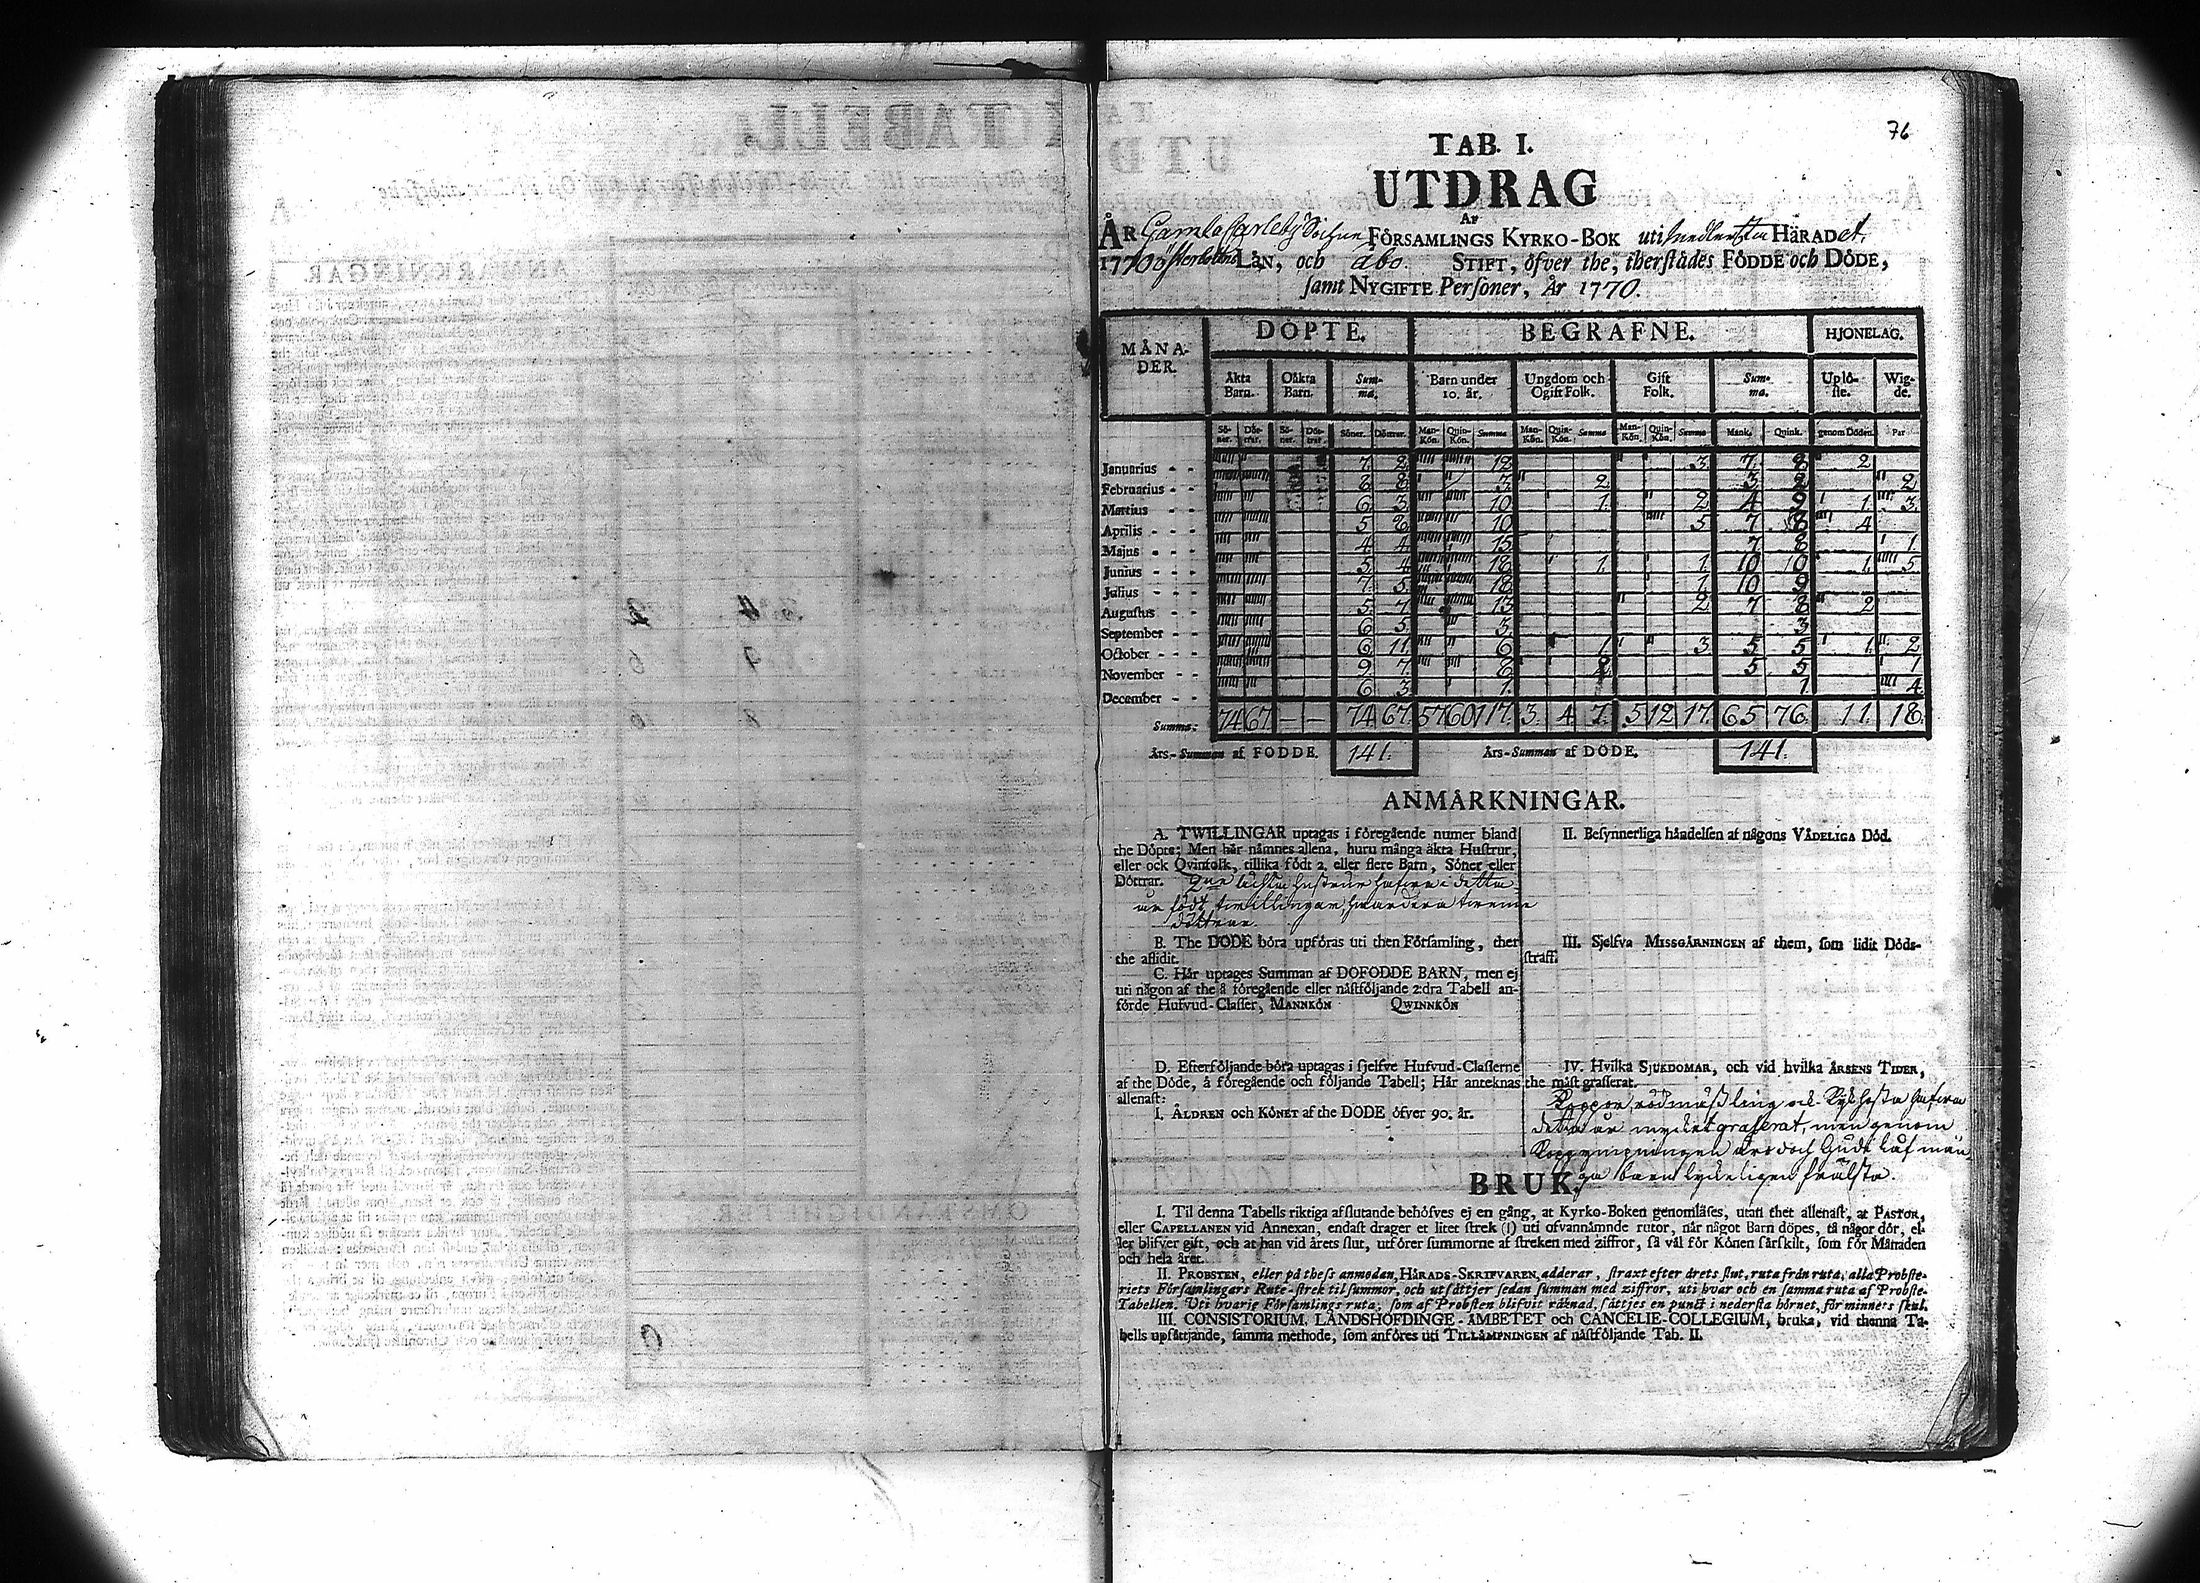 76
TAB. I.
UTDRAG
AF
ÅR Gamlacarleby Sochne FÖRSAMLINGS KYRKO-BOK uti medlersta HÄRADet.
1770 österbottns LÄN, och åbo. STIFT, öfver the, therstädes FÖDDE och DÖDE,
samt NYGIFTE Personer, År 1770.
MÅNADER. DÖPTE. BEGRAFNE. HJONELAG.
Äkta Barn. Oäkta Barn. Summa. Barn under 10. år. Ungdom och Ogift Folk. Gift Folk. Summa. Uplöste. Wigde.
Söner. Döttrar. Söner. Döttrar. Söner. Döttrar. Man-Kön. Quin-Kön. Summa Man-Kön. Quin-Kön. Summa Man-Kön. Quin-Kön. Summa Mank. Quink. genom Döden. Par
Januarius - - 7. 2. 12 3. 7. 8 2
Februarius - - 8 8 3. 2. 3 2 2
Martius - - 6 3. 10 1. 2 4 9 1. 3.
Aprilis - - - 5 6. 10 5 7 8 4
Majus - - - 4 4 15. 7 8 1.
Junius - - - 5 4 18 1. 1 10 10 1. 5
Julius - - - 7. 5. 18. 1. 10 9
Augustus - - 5. 7. 13 2 7 8 2
September - - 6 5. 3. 3
October - - - 6 11. 6 1. 3 5 5 1. 2
November - - 9 7. 8 2. 5 5 1
December - - 6 3. 1. 1. 4
Summa. 74 67 — — 74 67. 57 60 117. 3. 4 7. 5 12 17. 65 76. 11. 18.
Års-Summan af FÖDDE. 141. Års-Summan af DÖDE. 141.
ANMÄRKNINGAR.
A. TWILLINGAR uptagas i föregående numer bland
the Döpte; Men här nämnes allena, huru många äkta Hustrur,
eller ock Qvinfolk, tillika födt 2, eller flere Barn, Söner eller
Döttrar. 2ne ächta hustrur hafva i detta
år födt twillingar, hwardera twenne
döttrar.
B. The DÖDE böra upföras uti then Församling, ther
the aflidit.
C. Här uptages Summan af DÖFÖDDE BARN, men ej
uti någon af the å föregående eller nästföljande 2:dra Tabell an-
förde Hufvud-Classer, MANNKÖN QWINNKÖN
D. Efterföljande böra uptagas i sjelfve Hufvud-Classerne
af the Döde, å föregående och följande Tabell; Här anteknas
allenast:
I. ÅLDREN och KÖNET af the DÖDE öfver 90. år.
II. Besynnerliga händelsen af någons VÅDELIGA Död.
III. Sjelfva MISSGÄRNINGEN af them, som lidit Döds-
straff.
IV. Hvilka SJUKDOMAR, och vid hvilka ÅRSENS TIDER,
the mäst grasserat.
Koppor, rödmässling och Kikhosta hafva
detta år mycket grasserat, men genom
Koppympningen äro doch Gudi låf mån-
ga barn lyckeligen frälsta.
BRUK.
I. Til denna Tabells riktiga afslutande behöfves ej en gång, at Kyrko-Boken genomläses, utan thet allenast, at PASTOR,
eller CAPELLANEN vid Annexan, endast drager et litet strek (|) uti ofvannämnde rutor, när något Barn döpes, tå någor dör, el-
ler blifver gift, och at han vid årets slut, utförer summorne af streken med ziffror, så väl för Könen särskilt, som för Månaden
och hela året.
II. PROBSTEN, eller på thess anmodan, HÄRADS-SKRIFVAREN, adderar, straxt efter årets slut, ruta från ruta, alla Probste-
riets Församlingars Rute-strek til summor, och utsättjer sedan summan med ziffror, uti hvar och en samma ruta af Probste-
Tabellen. Uti hvarje Församlings ruta, som af Probsten blifvit räknad, sättjes en punct i nedersta hörnet, för minnets skul.
III. CONSISTORIUM, LANDSHÖFDINGE-ÄMBETET och CANCELIE-COLLEGIUM, bruka, vid thenna Ta-
bells upsättjande, samma methode, som anföres uti TILLÄMPNINGEN af nästföljande Tab. II.